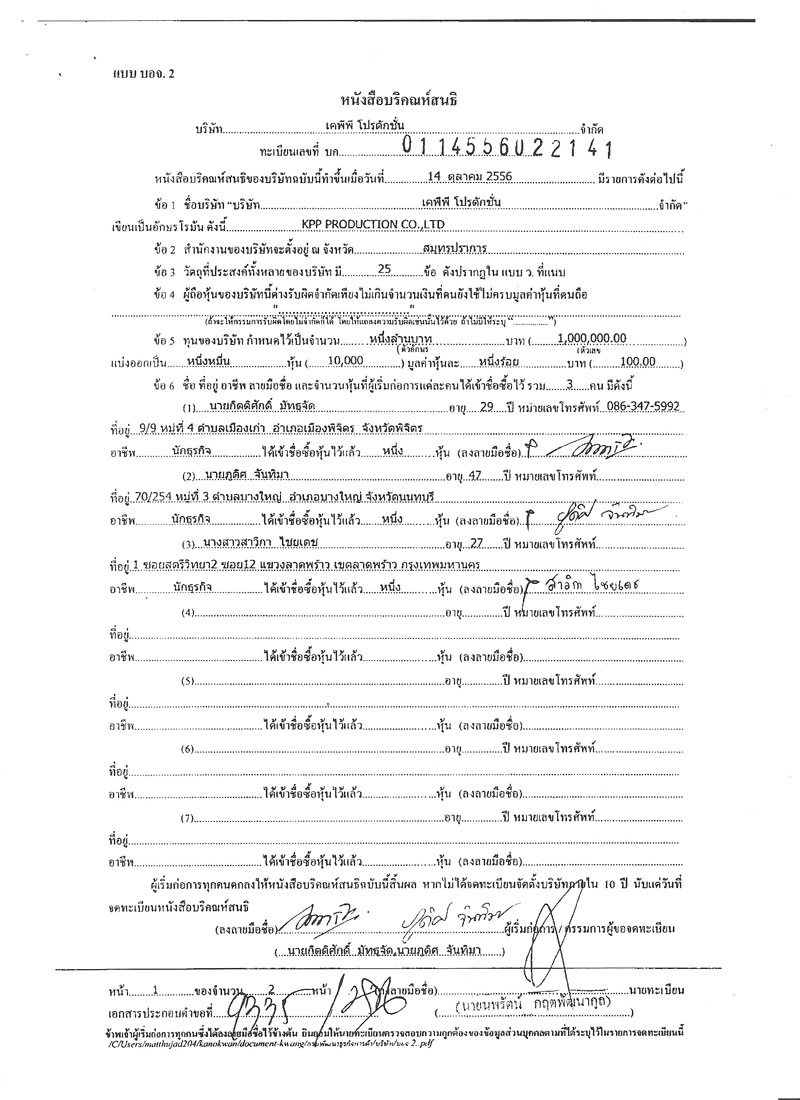 แบบ บอจ. 2
หนังสือบริคณห์สนธิ
บริษัท เคพีพี โปรดักชั่น จำกัด
ทะเบียนเลขที่ บค. 0114556022141
หนังสือบริคณห์สนธิของบริษัทฉบับนี้ทำขึ้นเมื่อวันที่ 14 ตุลาคม 2556 มีรายการดังต่อไปนี้
ข้อ 1 ชื่อบริษัท "บริษัท เคพีพี โปรดักชั่น จำกัด"
เขียนเป็นอักษรโรมัน ดังนี้ KPP PRODUCTION CO.,LTD
ข้อ 2 สำนักงานของบริษัทจะตั้งอยู่ ณ จังหวัด สมุทรปราการ
ข้อ 3 วัตถุที่ประสงค์ทั้งหลายของบริษัท มี 25 ข้อ ดังปรากฏใน แบบ ว. ที่แนบ
ข้อ 4 ผู้ถือหุ้นของบริษัทนี้ต่างรับผิดจำกัดเพียงไม่เกินจำนวนเงินที่ตนยังใช้ไม่ครบมูลค่าหุ้นที่ตนถือ
"...................."
(ถ้าจะให้กรรมการรับผิดโดยไม่จำกัดก็ได้ โดยให้แถลงความรับผิดเช่นนั้นไว้ด้วย ถ้าไม่มีให้ระบุ "..............")
ข้อ 5 ทุนของบริษัท กำหนดไว้เป็นจำนวน หนึ่งล้านบาท บาท ( 1,000,000.00 )
(ตัวอักษร (ตัวเลข
แบ่งออกเป็น หนึ่งหมื่น หุ้น ( 10,000 ) มูลค่าหุ้นละ หนึ่งร้อย บาท ( 100.00 )
ข้อ 6 ชื่อ ที่อยู่ อาชีพ ลายมือชื่อ และจำนวนหุ้นที่ผู้เริ่มก่อการแต่ละคนได้เข้าชื่อซื้อไว้ รวม 3 คน มีดังนี้
(1) นายกิตติศักดิ์ มัทธุจัด อายุ 29 ปี หมายเลขโทรศัพท์ 086-347-5992
ที่อยู่ 9/9 หมู่ที่ 4 ตำบลเมืองเก่า อำเภอเมืองพิจิตร จังหวัดพิจิตร
อาชีพ นักธุรกิจ ได้เข้าชื่อซื้อหุ้นไว้แล้ว หนึ่ง หุ้น (ลงลายมือชื่อ)
(2) นายภูดิศ จันทิมา อายุ 47 ปี หมายเลขโทรศัพท์
ที่อยู่ 70/254 หมู่ที่ 3 ตำบลบางใหญ่ อำเภอบางใหญ่ จังหวัดนนทบุรี
อาชีพ นักธุรกิจ ได้เข้าชื่อซื้อหุ้นไว้แล้ว หนึ่ง หุ้น (ลงลายมือชื่อ) ภูดิศ จันทิมา
(3) นางสาวสาวิกา ไชยเดช อายุ 27 ปี หมายเลขโทรศัพท์
ที่อยู่ 1 ซอยสตรีวิทยา2 ซอย12 แขวงลาดพร้าว เขตลาดพร้าว กรุงเทพมหานคร
อาชีพ นักธุรกิจ ได้เข้าชื่อซื้อหุ้นไว้แล้ว หนึ่ง หุ้น (ลงลายมือชื่อ) สาวิกา ไชยเดช
(4) อายุ ปี หมายเลขโทรศัพท์
ที่อยู่
อาชีพ ได้เข้าชื่อซื้อหุ้นไว้แล้ว หุ้น (ลงลายมือชื่อ)
(5) อายุ ปี หมายเลขโทรศัพท์
ที่อยู่
อาชีพ ได้เข้าชื่อซื้อหุ้นไว้แล้ว หุ้น (ลงลายมือชื่อ)
(6) อายุ ปี หมายเลขโทรศัพท์
ที่อยู่
อาชีพ ได้เข้าชื่อซื้อหุ้นไว้แล้ว หุ้น (ลงลายมือชื่อ)
(7) อายุ ปี หมายเลขโทรศัพท์
ที่อยู่
อาชีพ ได้เข้าชื่อซื้อหุ้นไว้แล้ว หุ้น (ลงลายมือชื่อ)
ผู้เริ่มก่อการทุกคนตกลงให้หนังสือบริคณห์สนธิฉบับนี้สิ้นผล หากไม่ได้จดทะเบียนจัดตั้งบริษัทภายใน 10 ปี นับแต่วันที่
จดทะเบียนหนังสือบริคณห์สนธิ
(ลงลายมือชื่อ) ภูดิศ จันทิมา ผู้เริ่มก่อการ / กรรมการผู้ขอจดทะเบียน
( นายกิตติศักดิ์ มัทธุจัด,นายภูดิศ จันทิมา )
หน้า 1 ของจำนวน 2 หน้า (ลงลายมือชื่อ) นายทะเบียน
เอกสารประกอบคำขอที่ 9335 (นายนพรัตน์ กฤตพัฒนากูล)
ข้าพเจ้าผู้เริ่มก่อการทุกคนซึ่งได้ลงลายมือชื่อไว้ข้างต้น ยินยอมให้นายทะเบียนตรวจสอบความถูกต้องของข้อมูลส่วนบุคคลตามที่ได้ระบุไว้ในรายการจดทะเบียนนี้